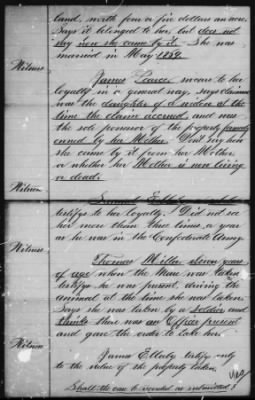 land, worth four or five dollars an acre.
Says it belonged to her, but does not
say how she came by it. She was
married in May 1859.
Witness
James Pearce swears to her
loyalty in a general way, says claimant
was the daughter of a widow at the
time the claim accrued, and was
the sole possessor of the property
owned by her Mother. Don't say how
she came by it from her Mother,
or whether her Mother is now living
or dead.
Witness
Samuel
testifys to her loyalty. Did not see
her more than three times a year
as he was in the Confederate Army.
Witness
Thomas Miller eleven years
of age when the Mare was taken
testifys he was present, driving the
animal at the time she was taken.
Says she was taken by a Soldier and
thinks there was an Officer present
and gave the order to take her.
Witness
James Ellerby certify only
to the value of the property taken.
Shall the case be recorded as submitted?